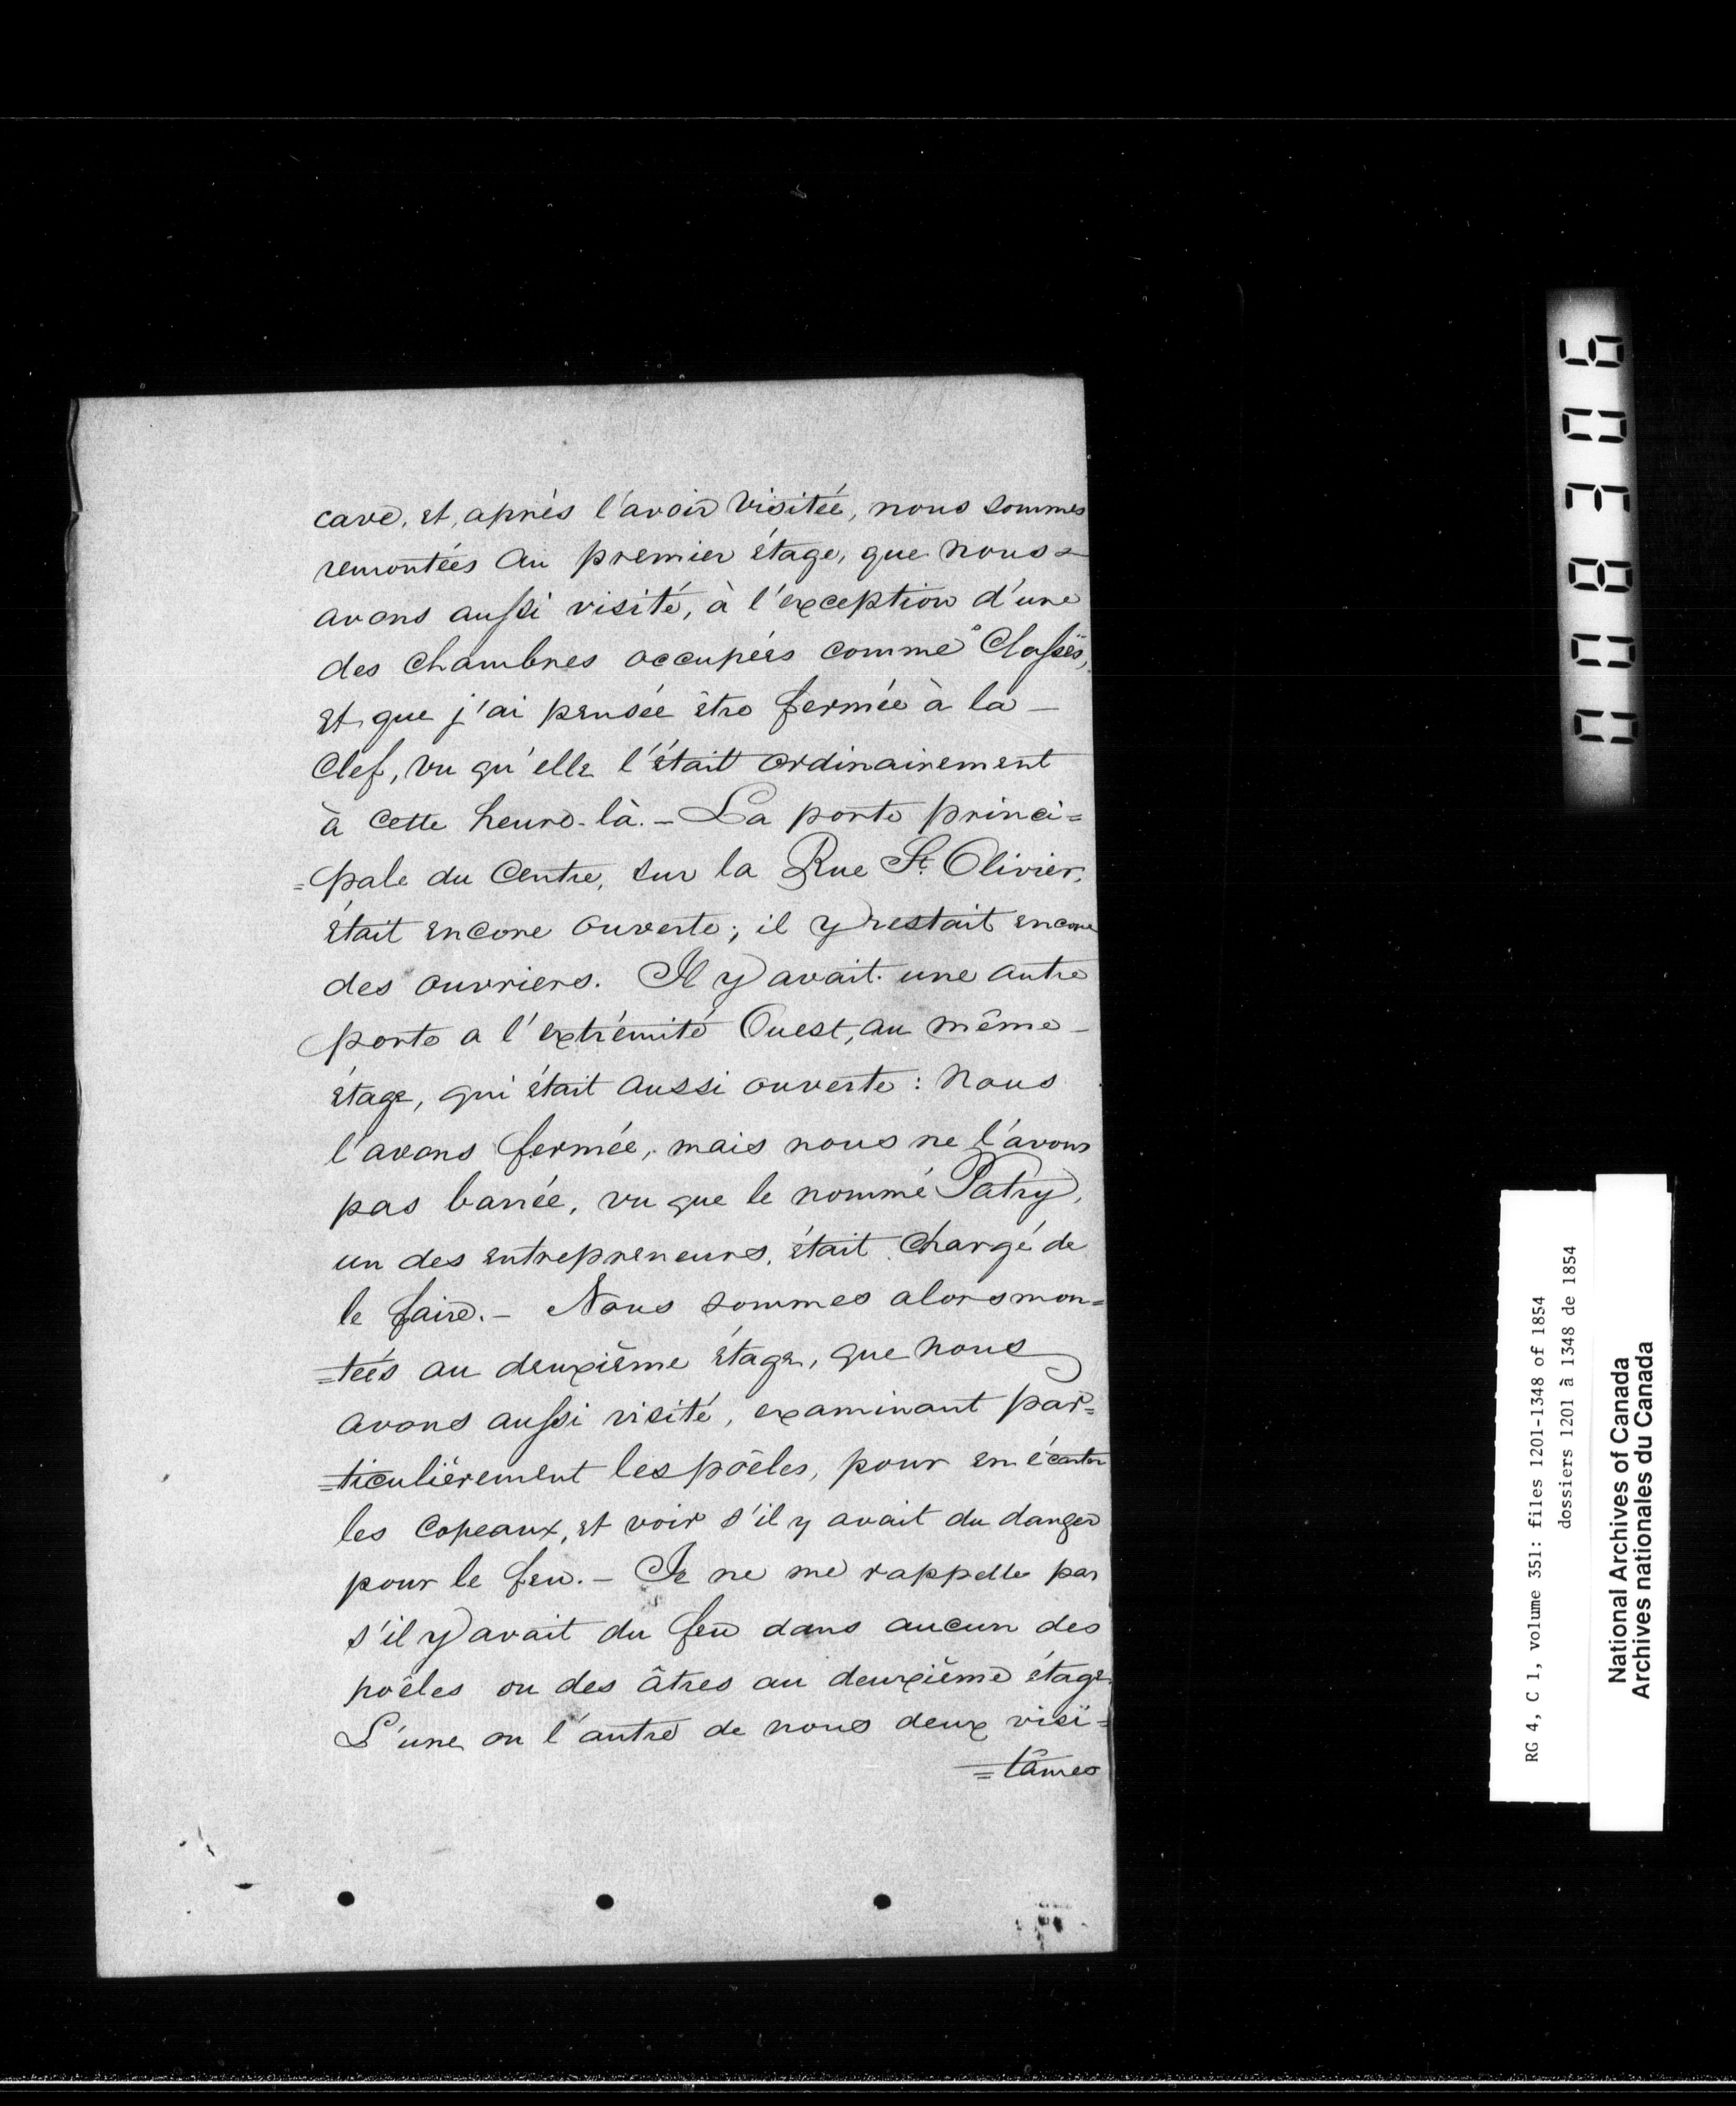 cave, et, après l'avoir visitée, nous sommes
remontées au premier étage, que nous
avons aussi visité, à l'exception d'une
des chambres occupées comme Classes,
et que j'ai pensée être fermée à la -
Clef, vu qu'elle l'était ordinairement
à cette heure-là. - La porte princi=
=pale du Centre, sur la Rue St. Olivier,
était encore ouverte; il y restait encore
des ouvriers. Il y avait une autre
porte a l'extrémité Ouest, au même -
étage, qui était aussi ouverte : nous
l'avons fermée, mais nous ne l'avons
pas barrée, vu que le nommé Patry,
un des entrepreneurs, était chargé de
le faire. - Nous sommes alors mon=
=tées au deuxième étage, que nous
avons aussi visité, examinant par=
=ticulièrement les poêles, pour en écarter
les Copeaux, et voir s'il y avait du danger
pour le feu. - Je ne me rappelle pas
s'il y avait du feu dans aucun des
poêles ou des âtres au deuxième étage.
L'une ou l'autre de nous deux visi=
=tâmes
008309
RG 4, C 1, volume 351: files 1201-1348 of 1854
dossiers 1201 à 1348 de 1854
National Archives of Canada
Archives nationales du Canada